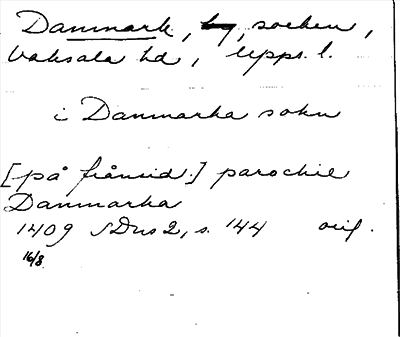 Danmark, by, socken,
Vaksala hd, Upps. l.
i Danmarka sokn
[på frånsid.] parochie
Danmarka
1409 SDns 2, s. 144 orig.
16/8.